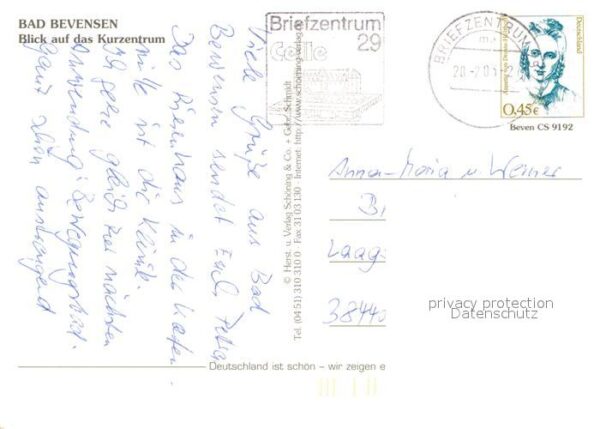 BAD BEVENSEN
Blick auf das Kurzentrum
Viele Grüße aus Bad
Bevensen sendet Euch Petra
Das Riesenhaus in der Karten-
mitte ist die Klinik.
Ich gehe gleich zur nächsten
Anwendung: Bewegungsbad.
Ganz schön anstrengend
Briefzentrum
29
Celle
BRIEFZENTRUM
Deutschland
0,45€
Beven CS 9192
© Herst. u. Verlag Schöning & Co. + Gebr. Schmidt
Tel. (04 51) 310 310 0 Fax 31 03 130 - Internet: http://www.schoening-verlag.de
Anna-Maria u. Werner
Laag
38440
privacy protection
Datenschutz
Deutschland ist schön – wir zeigen e